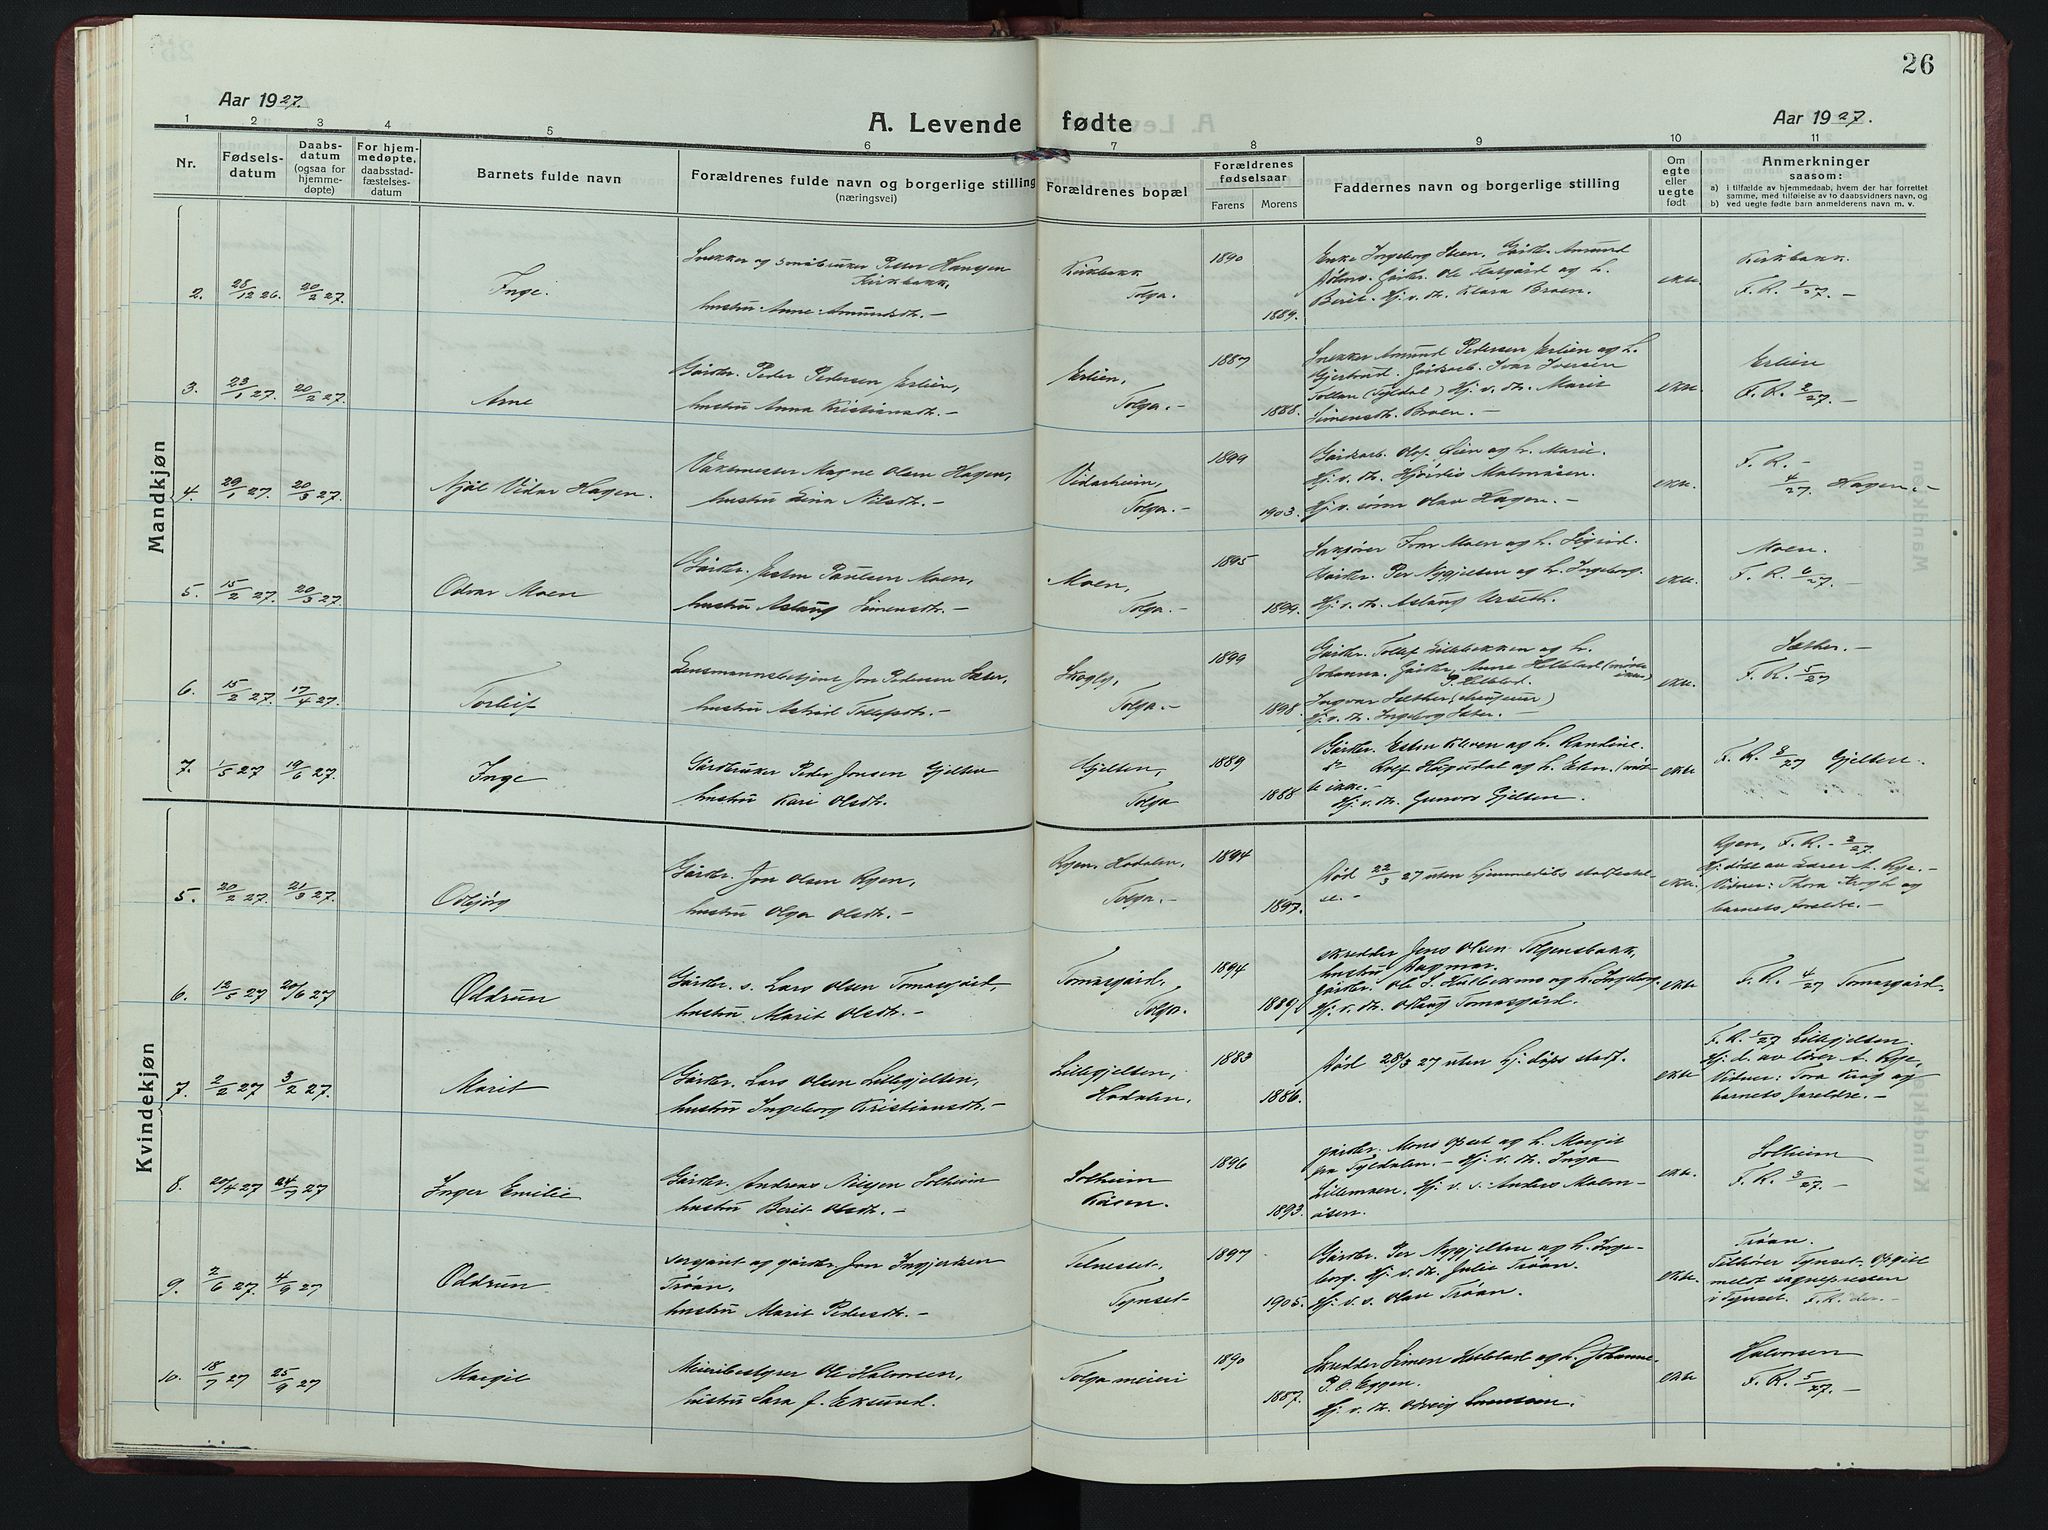 26
Aar 1927.
A. Levende fødte
Aar 1927.
1 2 3 4 5 6 7 8 9 10 11
Nr.
Fødsels-
datum
Daabs-
datum
(ogsaa for
hjemme-
døpte)
For hjem-
medøpte,
daabsstad-
fæstelses-
datum
Barnets fulde navn
Forældrenes fulde navn og borgerlige stilling
(næringsvei)
Forældrenes bopæl
Forældrenes
fødselsaar
Farens Morens
Faddernes navn og borgerlige stilling
Om
egte
eller
uegte
født
Anmerkninger
saasom:
a) i tilfælde av hjemmedaab, hvem der har forrettet
samme, med tilføielse av to daabsvidners navn, og
b) ved uegte fødte barn anmelderens navn m. v.
Mandkjøn
2. 28/12 26. 20/2 27. Inge.
Snekker og småbruker Petter Hansen
Kirkbakk,
hustru: Anne Amundsdtr. –
Kirkbakk
Tolga.
1890
1889.
Enke Ingeborg Steen. Gårdbr. Amund
Gårdbr. Ole Flatgård og h.
Berit. Hj. v. dtr. Klara Broen.
ekte
Kirkbakk.
F. R. 1/27. –
3. 23/1 27. 20/2 27. Arne
Gårdbr. Peder Pedersen Erlien,
hustru Anna Kristiansdtr. –
Erlien,
Tolga. –
1887
1888.
Snekker Amund Pedersen Erlien og h.
Gjertrud. Gårdarb. Ivar Iversen
(Tyldal) Hj. v. dtr. Marit
Simensdtr. Broen. –
ekte.
Erlien
F. R. 2/27. –
4. 29/1 27. 20/3 27. Njål Vidar Hagen.
Vaktmester Magne Olsen Hagen,
hustru Nilsdtr. –
Vidarheim,
Tolga. –
1899
1903.
Gårdarb. Olof Øien og h. Marie.
Hj. v. dtr. Hjørdis Malmåsen.
Hj. v. sønn Olav Hagen. –
ekte.
F. R. –
4/27. Hagen. –
5. 15/2 27. 20/3 27. Odvar Moen
Gårdbr. Esten Paulsen Moen,
hustru Aslaug Simensdtr. –
Moen,
Tolga. –
1895
1899.
Sakfører Ivar Moen og h. Sigrid.
Gårdbr. Per Nygjelten og h. Ingeborg.
Hj. v. dtr. Aslaug Urseth.
ekte.
Moen.
F. R. 6/27. –
6. 15/2 27. 17/4 27. Torleif
Lensmannsbetjent Jon Pedersen Sæter,
hustru Astrid Tollefsdtr. –
Skogly,
Tolga. –
1899
1898.
Gårdbr. Tollef Lillebekken og h.
Johanna. Gårdbr. Anne Hilstad (møtte
ikke)
P. Hilstad.
Ingvar Sæther
Hj. v. dtr. Ingeborg Sæter. –
ekte.
Sæther. –
F. R. 5/27
7. 1/5 27 19/6 27. Inge
Gårdbruker Peder Jonsen Gjelten
hustru Kari Olsdtr.
Gjelten,
Tolga
1889
1888
Gårdbr. Esten Kleven og h. Randine.
do Rolf Hagedal og h. (møt-
te ikke. –
Hj. v. dtr. Gunvor Gjelten.
ekte
F. R. 8/27 Gjelten.
Kvindekjøn
5. 20/2 27. 21/3 27. Odbjørg
Gårdbr. Jon Olsen Ryen,
hustru Olga Olsdtr. –
Ryen, Hodalen,
Tolga. –
1894
1897.
Død 22/3 27 uten hjemmedåps stadfestel-
se. –
ekte.
Ryen, F. R. – 2/27.
Hj. døbt av Lærer A. Rye. –
Vidner: Thora Krogh og
barnets foreldre. –
6. 12/5 27 20/6 27 Oddrun
Gårdbr. s. Lars Olsen Tomasgård,
hustru Marit Olsdtr. –
Tomasgård,
Tolga.
1894
1889
Skredder Jens Olsen Tolgensbakk,
hustru Dagmar.
gårdbr. Ole S. og h. Ingeborg.
Hj. v. dtr. Oslaug Tomasgård.
ekte
F. R. 4/27 Tomasgård.
7. 2/2 27 3/2 27. Marit
Gårdbr. Lars Olsen Lillegjelten,
hustru Ingeborg Kristiansdtr. –
Lillegjelten,
Hodalen.
1883
1886.
Død 28/3 27 uten hj. dåps stadf.
ekte
F. R. 1/27 Lillegjelten.
Hj. d. av lærer A. Rye,
Vidner: Tora Krog og
barnets foreldre. –
8. 20/4 27 24/7 27 Inger Emilie
Gårdbr. Andreas Nilsen Solheim
hustru Berit Olsdtr. –
Solheim
Råsen.
1896
1893.
gårdbr. Mons Opset og h. Margit
fra Tyldalen. – Hj. v. dtr. Inga
Lillemoen. Hj. v. s. Anders Malm-
åsen.
ekte.
Solheim
F. R. 3/27. –
9. 2/6 27. 4/9 27 Oddrun
Sersjant og gårdbr. Jon Ingjertsen
Trøan,
hustru Marit Pedersdtr. –
Telneset.
Tynset
1897
1905.
Gårdbr. Per Nygjelten og h. Inge-
borg. Hj. v. dtr. Julie Trøan.
Hj. v. s. Olav Trøan.
ekte.
Trøan.
Tilhører Tynset. Opgitt
meldt sognepresten
i Tynset. F. R. der. –
10. 18/7 27 25/9 27 Margit
Meieribestyrer Ole Halvorsen,
hustru Sara J. Eksund.
Tolga meieri
1890
1887.
Skredder Simen Hilstad og h. Johanne.
P. O. Eggen.
Hj. v. dtr. Solveig
ekte
Halvorsen
F. R. 5/27. –